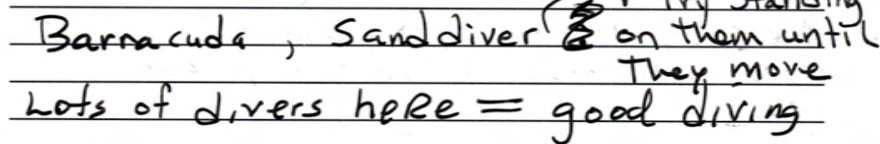 Try standing
Barracuda, Sanddiver on them until
They move
Lots of divers here = good diving